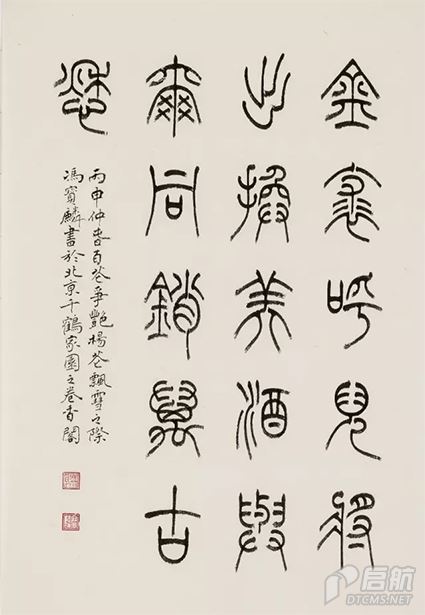 金裘呼兒將
出換美酒與
爾同銷萬古
愁
丙申仲春百花爭艷楊花飄雪之際
馮寶麟書於北京千鶴家園之卷香閣
启航
DTCMS.NET